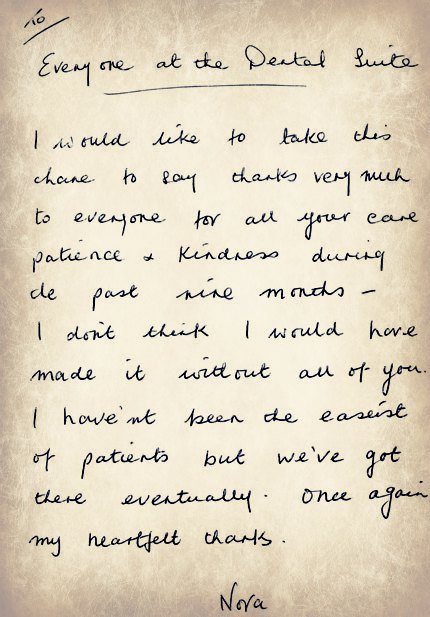 To
Everyone at the Dental Suite
I would like to take this
chane to say thanks very much
to everyone for all your care
patience & kindness during
the past nine months –
I don't think I would have
made it without all of you.
I have'nt been the easeist
of patients but we've got
there eventually. Once again
my heartfelt thanks.
Nora